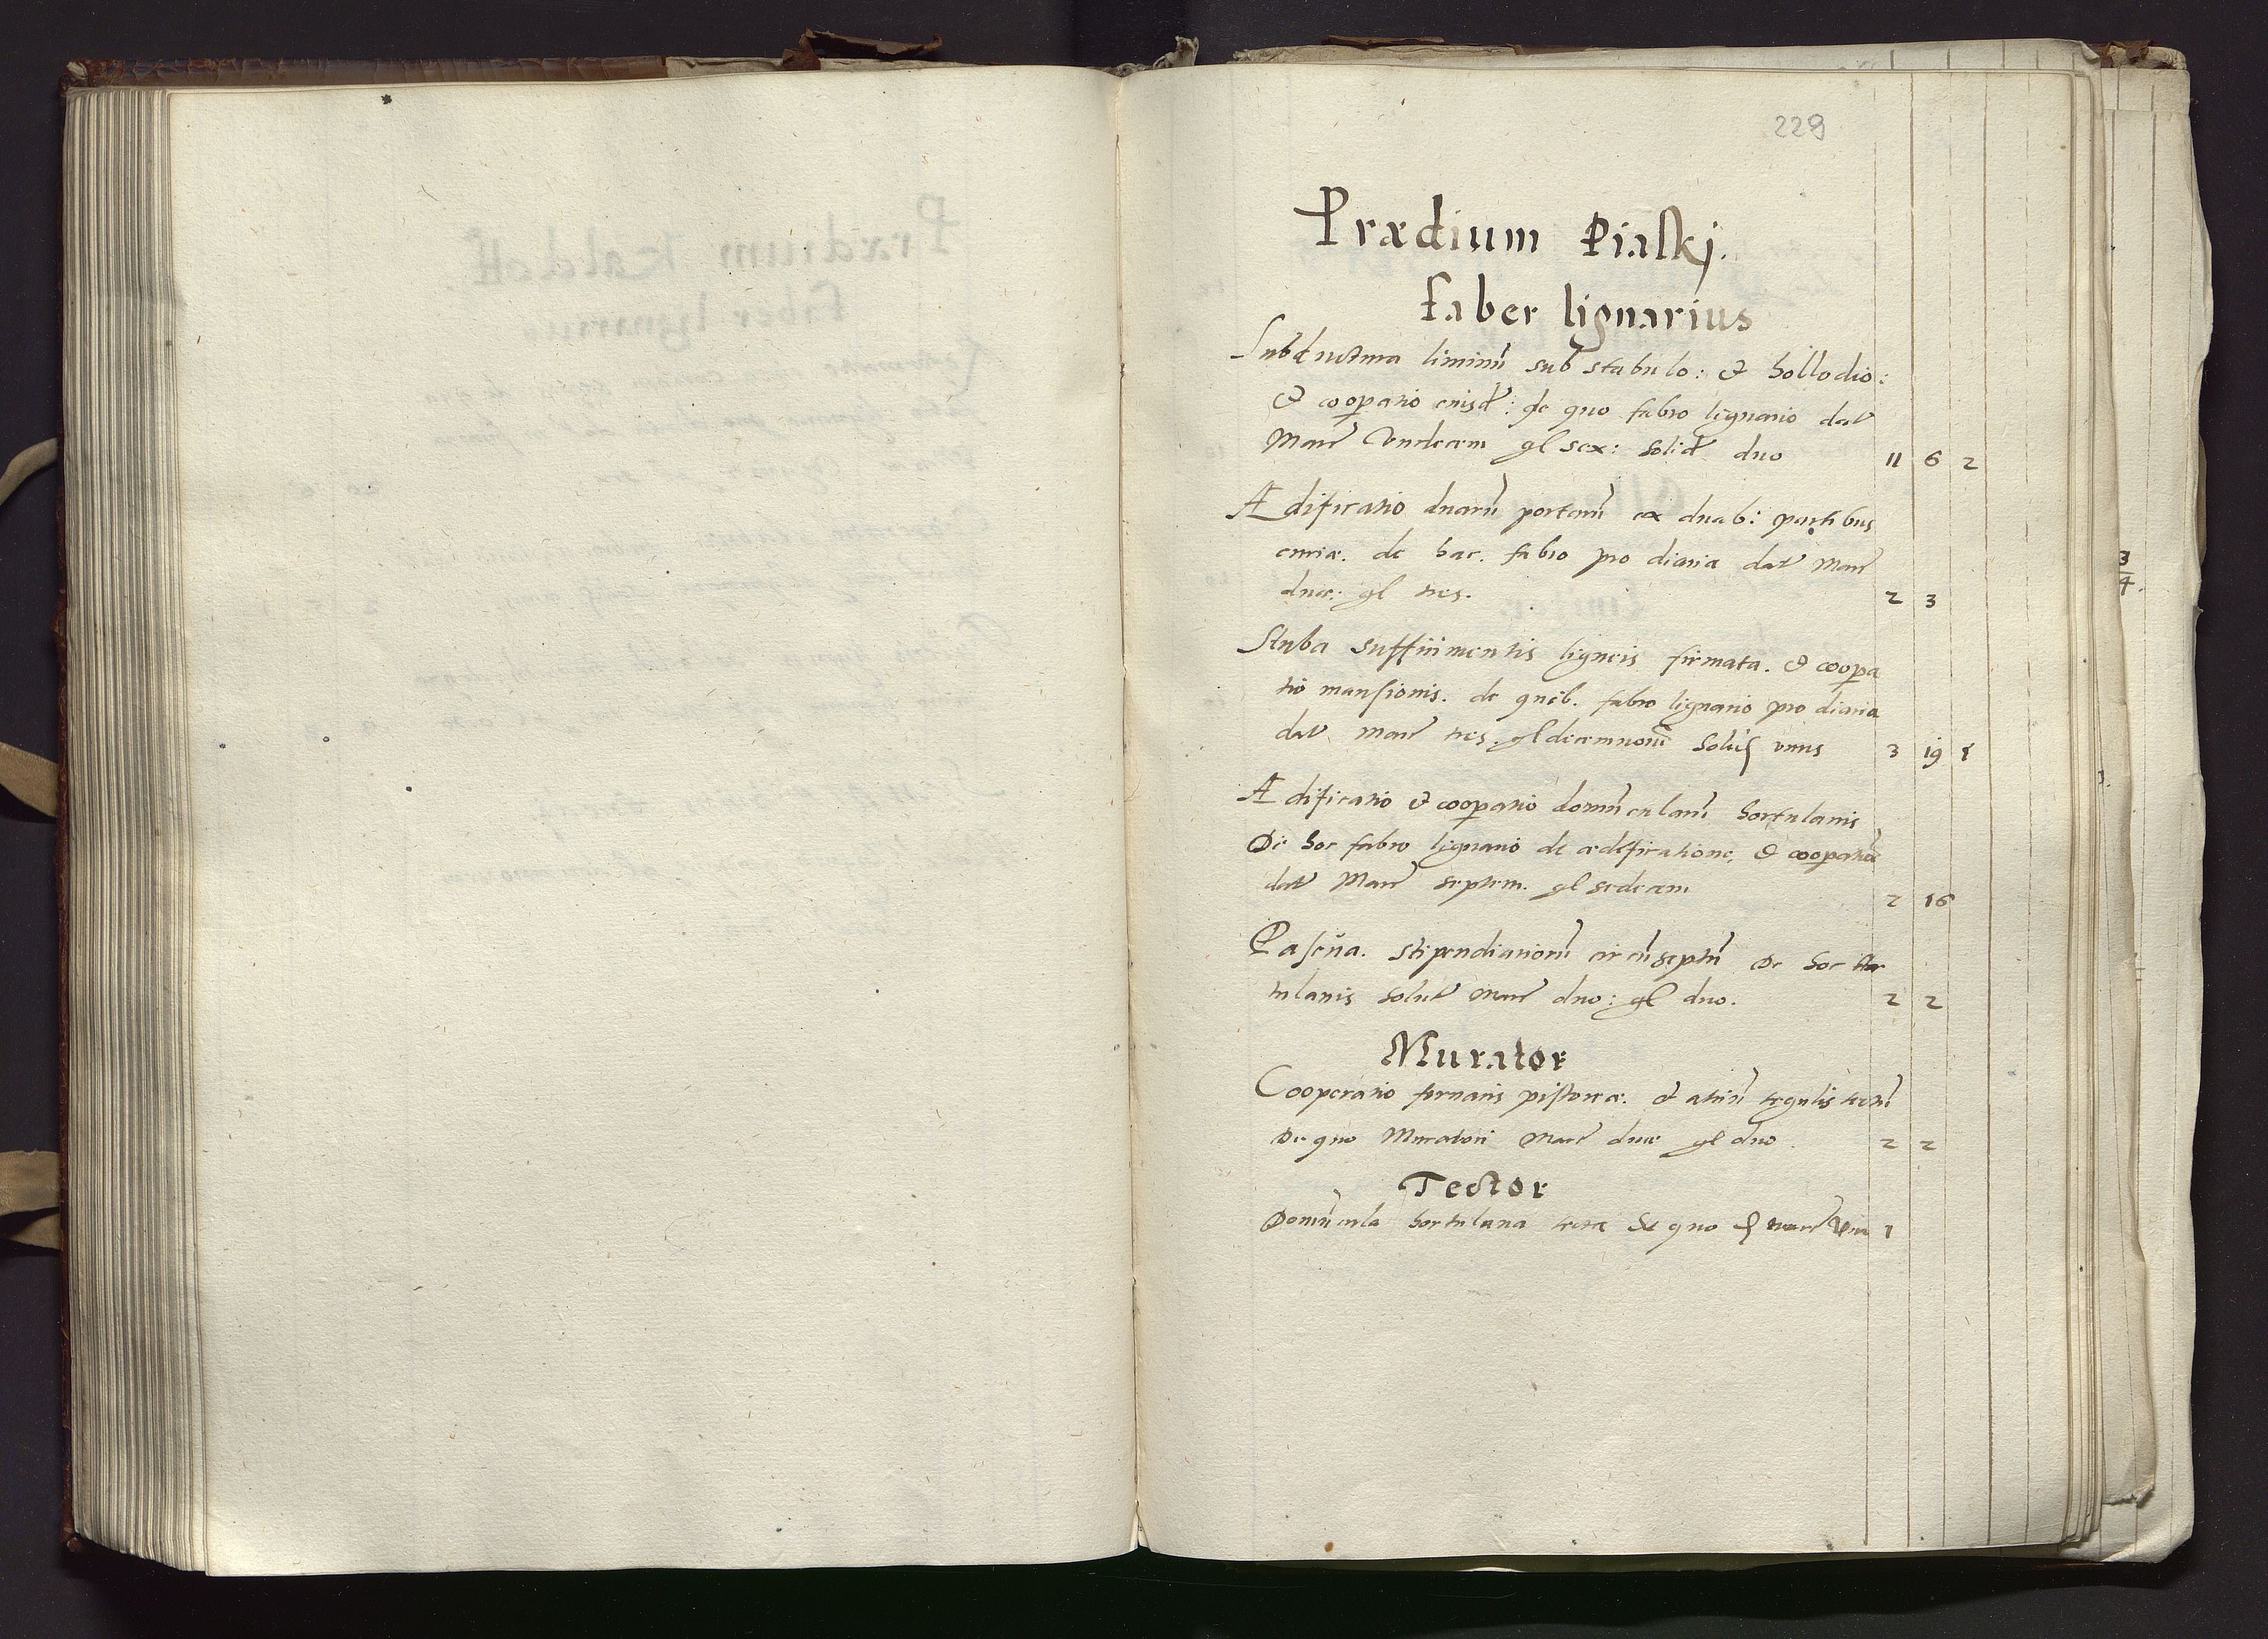 229
Prædium Piaskj.
faber lignarius
Subductura liminū sub stabulo: et hollodio:
et coopatio eiusd: de quo fabro lignario dat
Marc Vndecem gl sex: solid duo 11 6 2
Ædificatio duarū portarū ex duab: partibus
curiæ. de hac. fabro pro diaria dat Marc
duæ: gl tres. 2 3
Stuba suffirmentis ligneis firmata. et coopa
tio mansionis. de quib. fabro lignario pro diaria
dat marc tres. gl decemnouē solid vnus 3 19 1
Ædificatio et coopatio domūcularū hortulanis
De hoc fabro lignario de ædificatione, et coopatiōe
dat Marc septem. gl sedecem 7 16
Pascua. stipendiariorū circūseptū De hoc hor
tulanis solut Marc duo: gl duo. 2 2
Murator
Cooperatio fornacis pistoreæ. et atriū tegulis tectū
De quo Muratori Marc duæ gl duo. 2 2
Tector
Domūcula hortulana tecta de quo marc Vna 1
3
4.